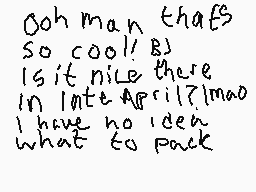 Ooh man thats
so cool! B)
Is it nice there
in late April?lmao
I have no idea
what to pack